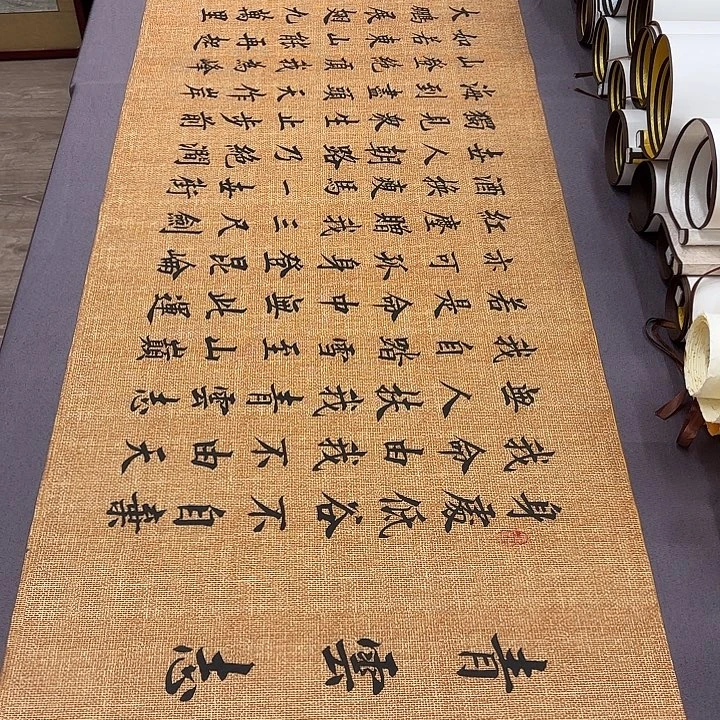 青雲志
身處低谷不自棄
我命由我不由天
無人扶我青雲志
我自踏雪至山巔
若是命中無此運
亦可孤身登昆崘
紅塵賜我三尺劍
酒換瘦馬一世街
世人朝路乃絕澗
獨見眾生止步前
海到盡頭天作岸
山登絕頂我為峰
如若東山能再起
大鵬展翅九萬里